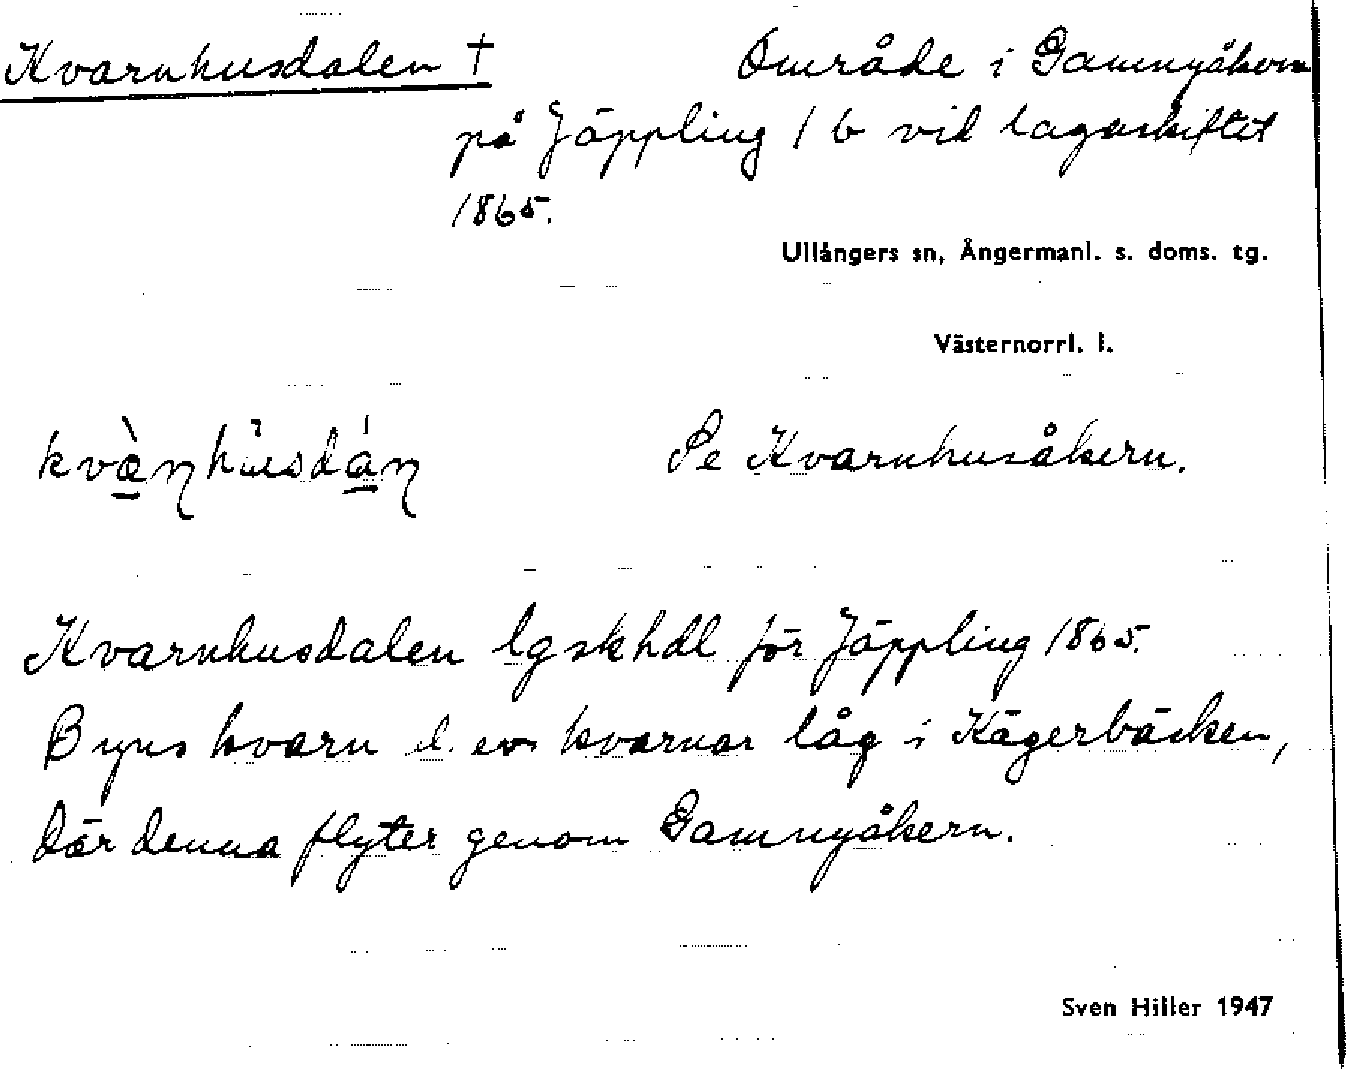 Kvarnhusdalen † Område i Gammyåkern
på Jäppling 1 b vid lagaskiftet
1865.
Ullångers sn, Ångermanl. s. doms. tg.
Västernorrl. l.
Se Kvarnhusåkern.
Kvarnhusdalen lgskhdl för Jäppling 1865.
Byns kvarn el. ev. kvarnar låg i Kägerbäcken,
där denna flyter genom Gammyåkern.
Sven Hiller 1947